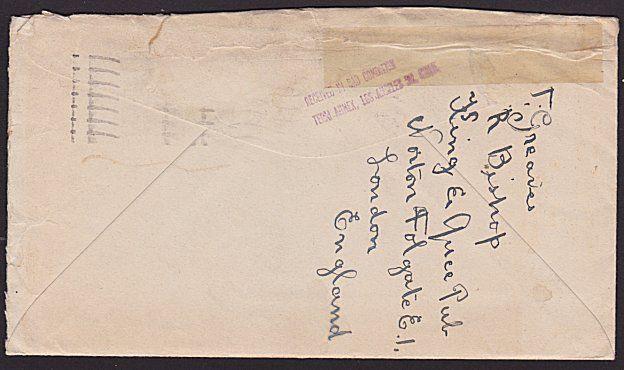 RECEIVED IN BAD CONDITION
TERM. ANNEX, LOS ANGELES
T. Greaves
R Bishop
King &
Pub
Norton Folgate E.1.
London
England